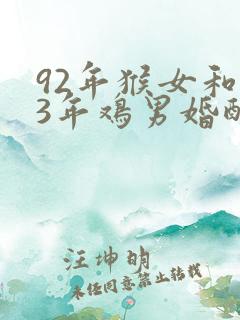 92年猴女和
3年鸡男婚配
汪坤明
未经同意禁止转载